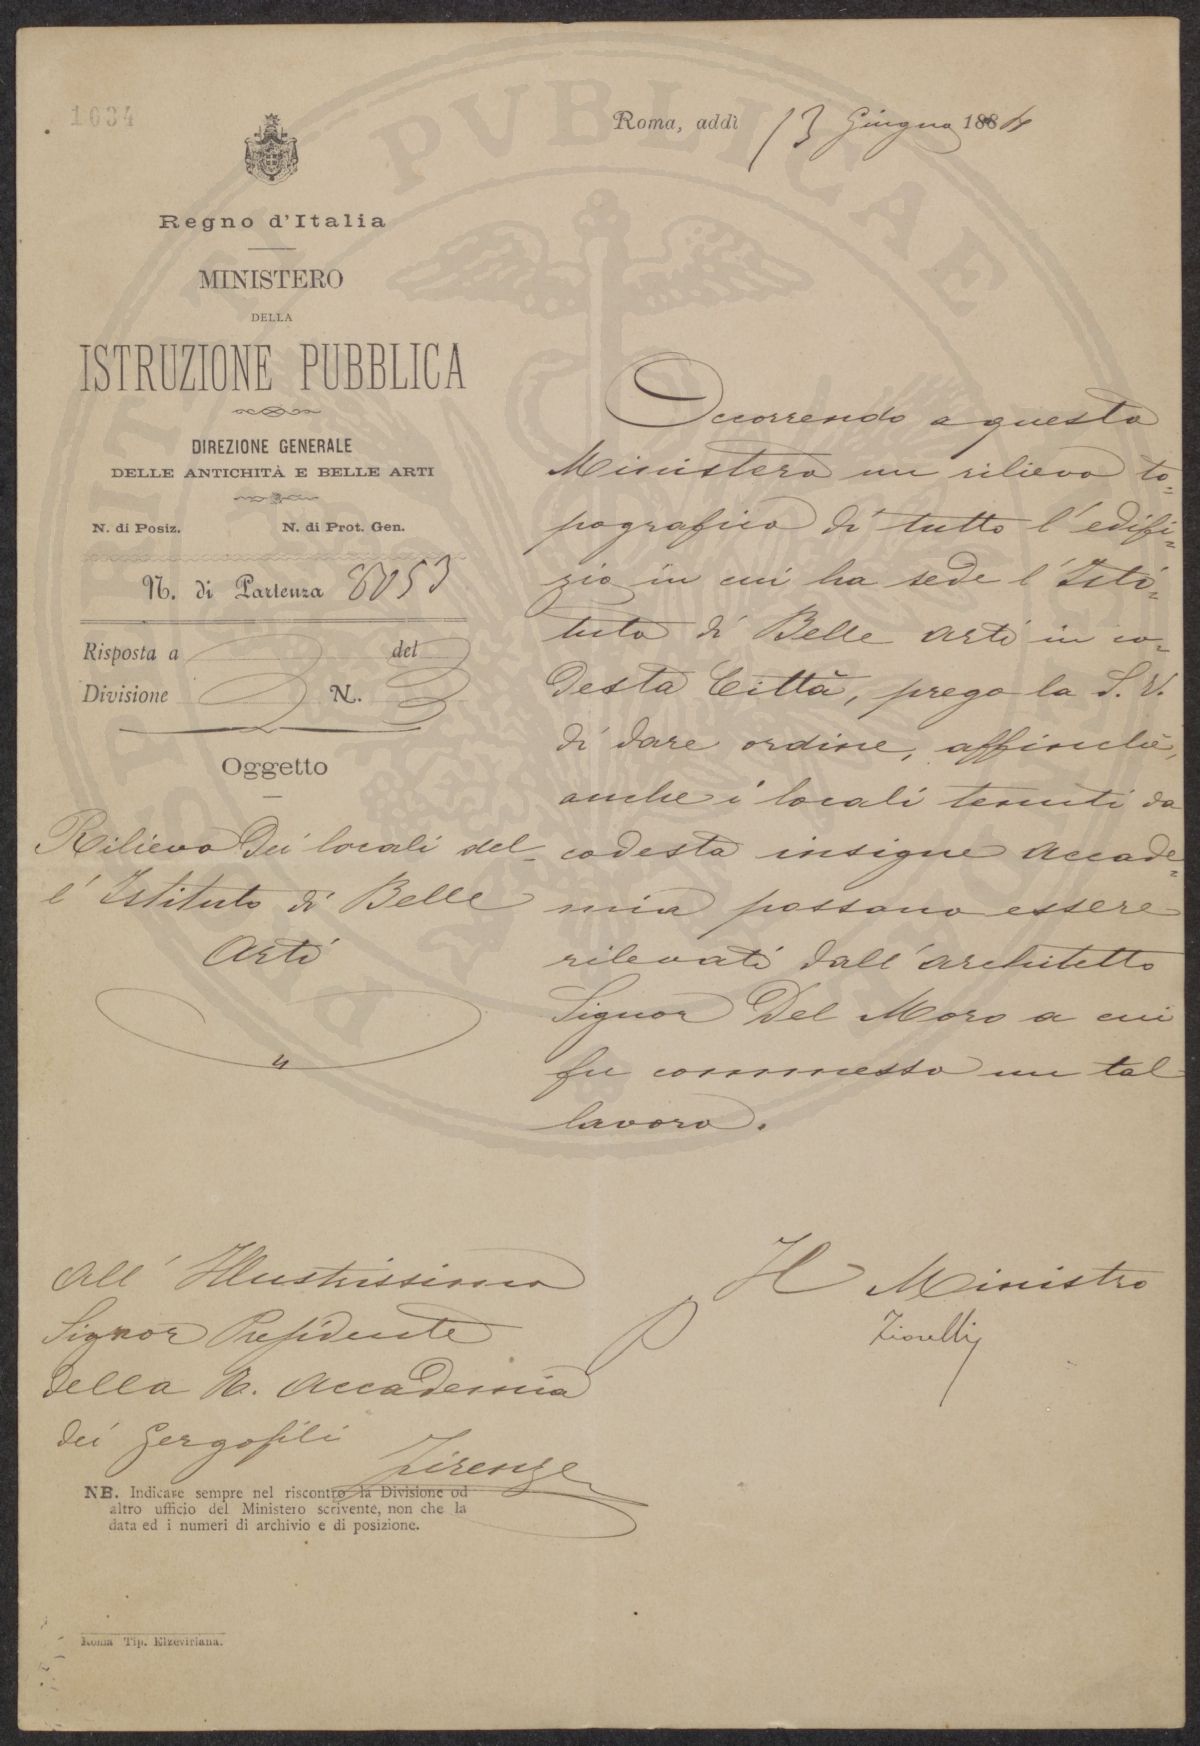 1034
Roma, addì 13 Giugno 1884
Regno d'Italia
MINISTERO
DELLA
ISTRUZIONE PUBBLICA
DIREZIONE GENERALE
DELLE ANTICHITÀ E BELLE ARTI
N. di Posiz. N. di Prot. Gen.
N. di Partenza 8053
Risposta a del
Divisione N.
Oggetto
Rilievo dei locali del-
l'Istituto di Belle
Arti
Occorrendo a questo
Ministero un rilievo to-
pografico di tutto l'edifi-
zio in cui ha sede l'Isti-
tuto di Belle Arti in co-
desta Città, prego la S. V.
di dare ordine, affinchè,
anche i locali tenuti da
codesta insigne Accade-
mia possano essere
rilevati dall'architetto
Signor Del Moro a cui
fu commesso un tal
lavoro.
Il Ministro
Fiorelli
All'Illustrissimo
Signor Presidente
della R. Accademia
dei Gergofili
Firenze
NB. Indicare sempre nel riscontro la Divisione od
altro ufficio del Ministero scrivente, non che la
data ed i numeri di archivio e di posizione.
Roma Tip. Elzeviriana.